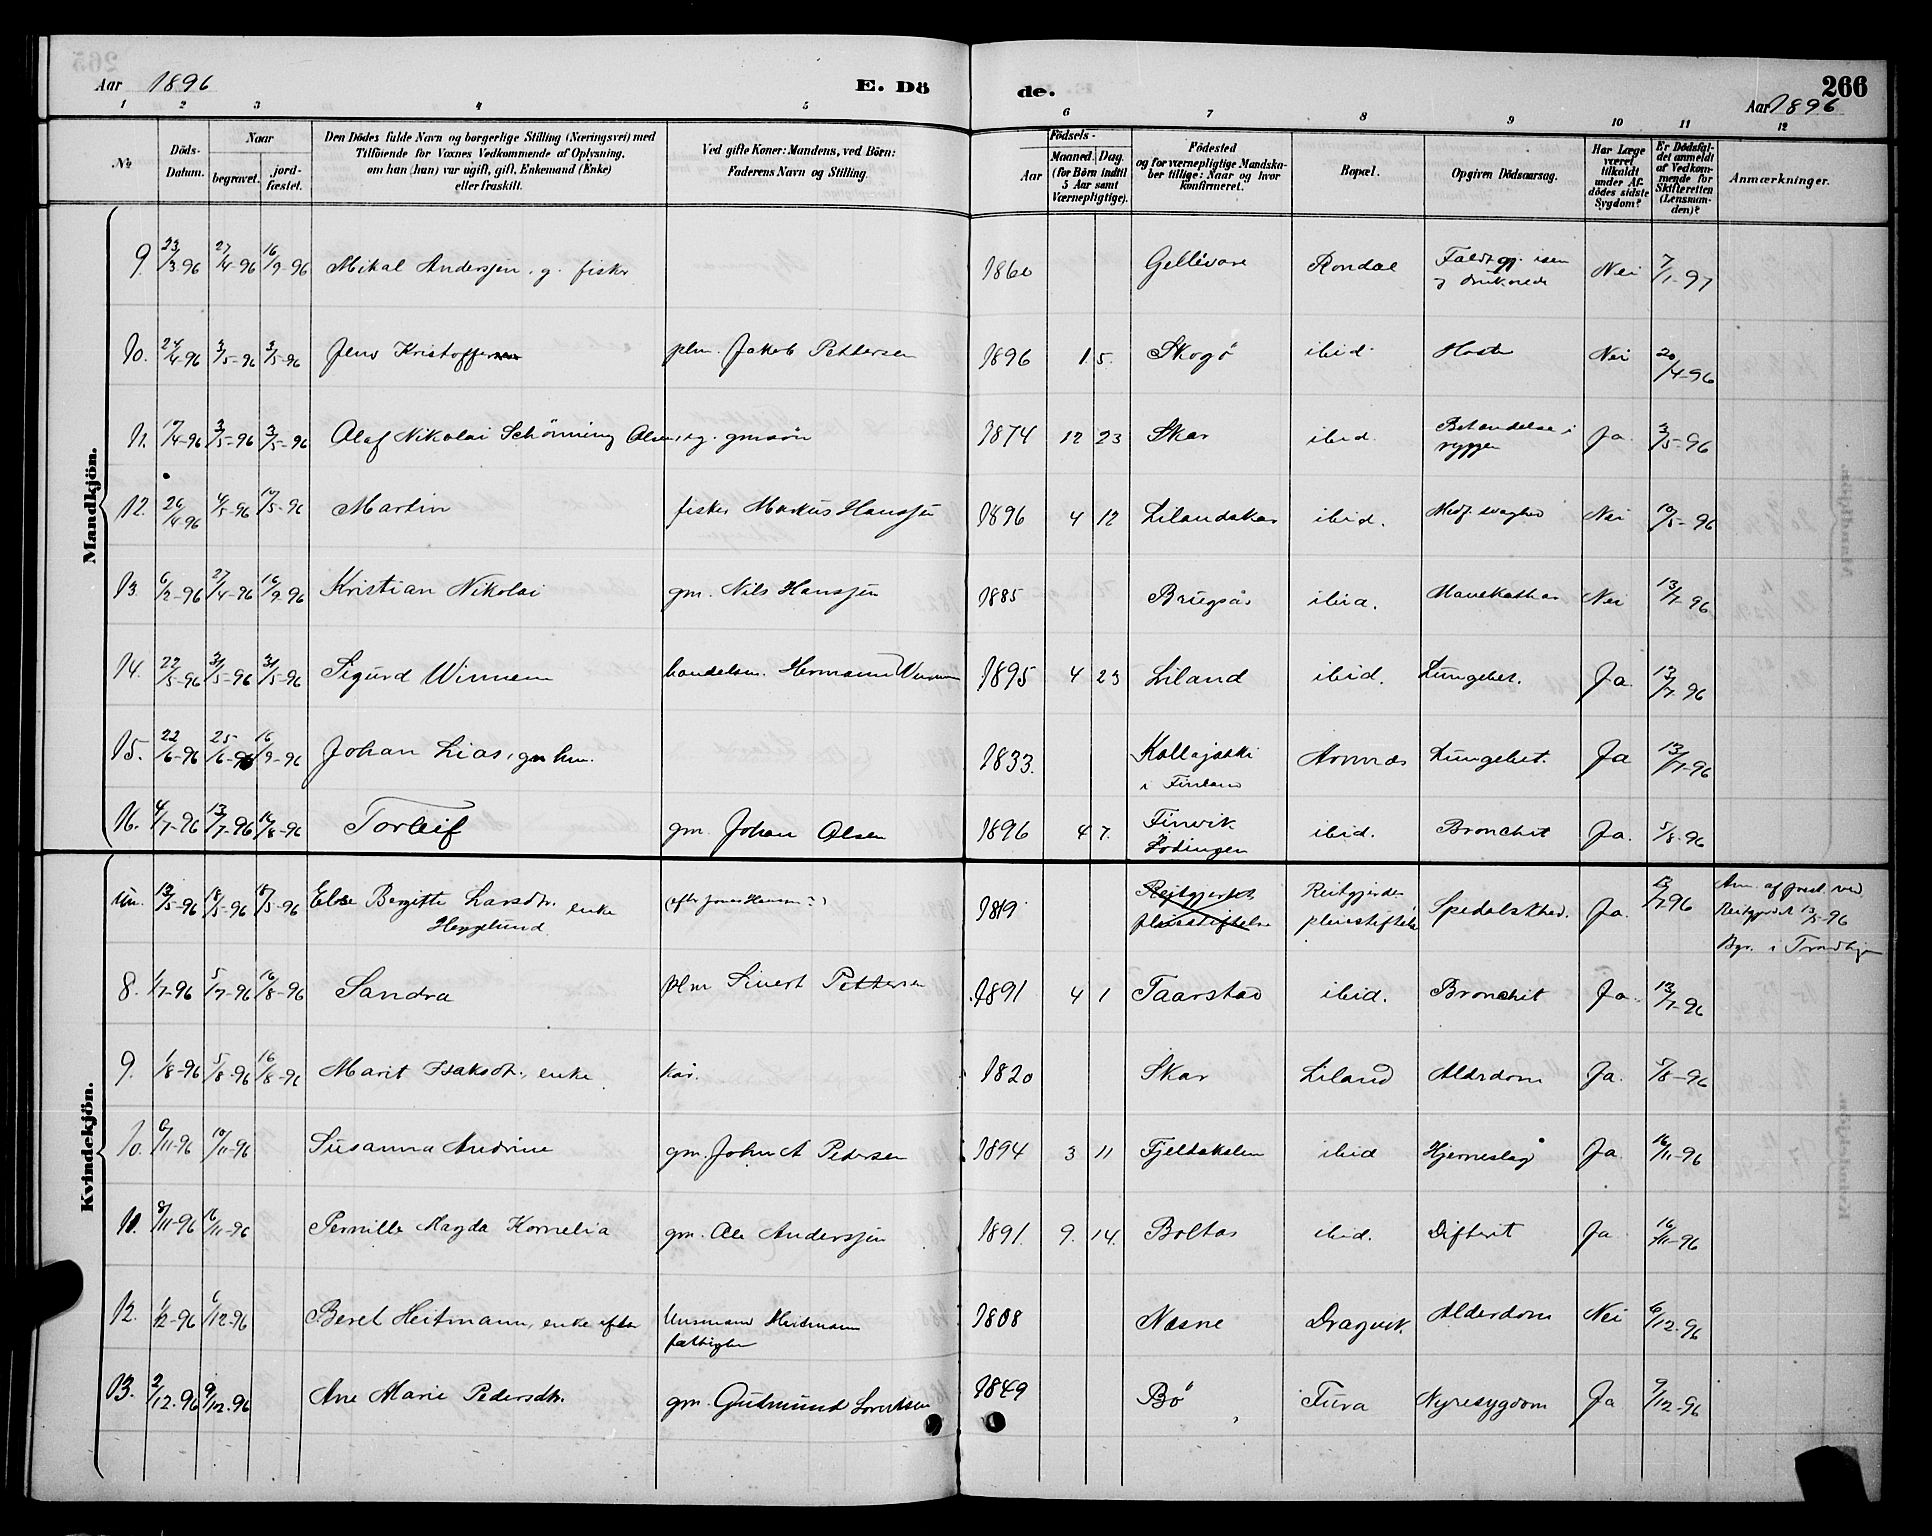 Aar 1896
E. Dö
de.
266
Aar 1896
1 2 3 4 5 6 7 8 9 10 11 12
№
Döds-Datum.
Naar
begravet.
jord-fæstet.
Den Dödes fulde Navn og borgerlige Stilling (Næringsvei) med
Tilföiende for Voxnes Vedkommende af Oplysning,
om han (hun) var ugift, gift, Enkemand (Enke)
eller fraskilt.
Ved gifte Koner: Mandens, ved Börn:
Faderens Navn og Stilling.
Födsels-
Aar
Maaned. Dag.
(for Börn indtil
5 Aar samt
Værnepligtige).
Födested
og for værnepligtige Mandska-
ber tillige: Naar og hvor
konfirmeret.
Bopæl.
Opgiven Dödsaarsag.
Har Læge
været
tilkaldt
under Af-
dödes sidste
Sygdom?
Er Dödsfal-
det anmeldt
af Vedkom-
mende for
Skifteretten
(Lensman-
den)?
Anmærkninger.
Mandkjön.
9. 23/3-96 27/4-96 16/9-96 Mikal Anderssen, g. fisker 1860 Gellivare Rondal isen Nei 7/1-97
10. 24/4-96 3/5-96 3/5-96 Jens Kristoffer plm. Jakob Pettersen 1896 1 5. Skogö ibid. Hoste Nei 20/4-96
11. 17/4-96 3/5-96 3/5-96 Olaf Nikolai Schönning Olsen, ug. gmsön 1874 12 23 Skar ibid. Betændelse i ryggen Ja. 3/5-96
12. 26/4-96 4/5-96 17/5-96 Martin fisker Markus Hanssen 1896 4 12 Lilandskar ibid. Medf. svaghed Nei 10/5-96
13. 6/2-96 27/4-96 16/9-96 Kristian Nikolai gm. Nils Hanssen 1885 Brugsås ibid. Mavekathar Nei 13/7-96
14. 22/5-96 31/5-96 31/5-96 Sigurd Winnem handelsm. Hermann Winnem 1895 4 23 Liland ibid. Lungebet. Ja 13/7-96
15. 22/6-96 25/6-96 16/9-96 Johan Lias, 1833. i Finland Lungebet. Ja 13/7-96
16. 4/7-96 13/7-96 16/8-96 Torleif gm. Johan Olsen 1896 4 7. Finvik Lödingen ibid. Bronchit Ja. 5/8-96
Kvindekjön.
un. 13/5-96 18/5-96 18/5-96 Else Bergitte Larsdtr. enke
Heggelund (efter Jonas Hansen?) 1819 Reitgjerdets pleiestiftelse Reitgjerdets pleiestiftelse Spedalskhed. Ja. 13/7 96 Anm. af prest. ved
Reitgjerdet 13/5-96
Bgr. i Trondhjem
8. 1/7-96 5/7-96 16/8-96 Sandra plm Sivert Pettersen 1891 4 1 Taarstad ibid. Bronchit Ja 13/7-96
9. 1/8-96 5/8-96 16/8-96 Marit Isaksdtr., enke kår. 1820 Skar Liland Alderdom Ja. 5/8-96
10. 6/11-96 10/11-96 Susanna Andrine gm. Johan A Pedersen 1894 3 11 Fjeldskalen ibid Hjerneslag Ja. 16/11-96
11. 8/11-96 16/11-96 Pernille Magda Kornelia gm. Ole Anderssen 1891. 9. 14. Boltås ibid. Difterit Ja 16/11-96
12. 1/12-96 6/12-96 Beret Heitmann, enke efter Unsmann Heitmann
fattiglem 1808 Næsne Dragvik. Alderdom Nei 6/12-96
13. 2/12-96 9/12-96 Ane Marie Pedersdtr. gm. Gudmund Lorentsen 1849 Bö Furå Nyresygdom Ja 9/12-96